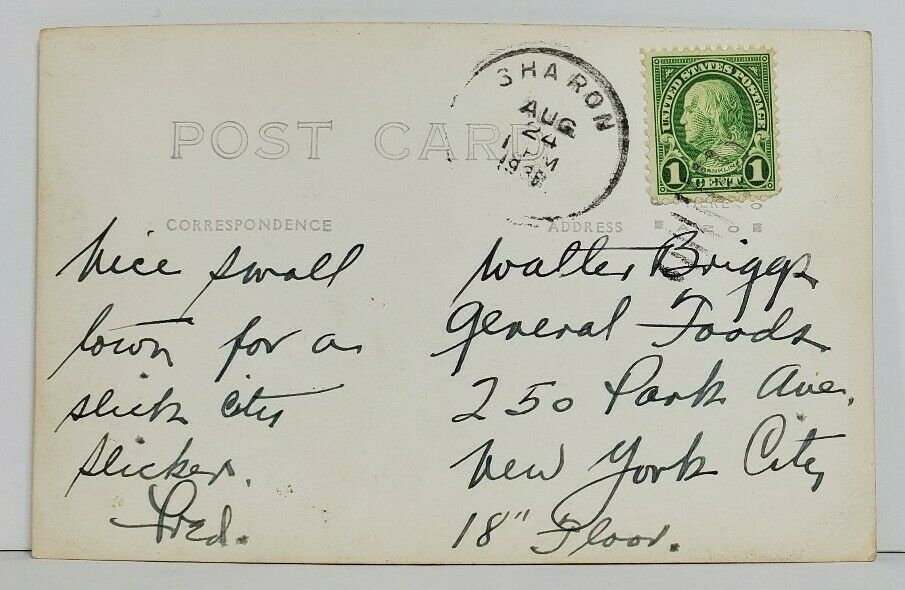 SHARON
AUG
24
1 PM
1936
UNITED STATES POSTAGE
FRANKLIN
1 CENT 1
POST CARD
CORRESPONDENCE
ADDRESS
Nice small
town for a
slick city
slicker.
Fred.
Walter Briggs
General Foods
250 Park Ave.
New York City
18" Floor.